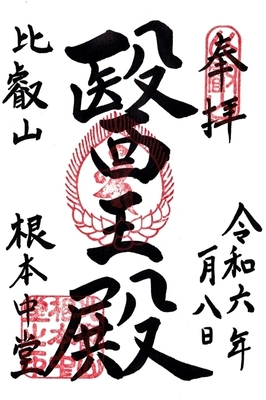 奉拝
令和六年
月八日
醫王殿
比叡山
根本中堂